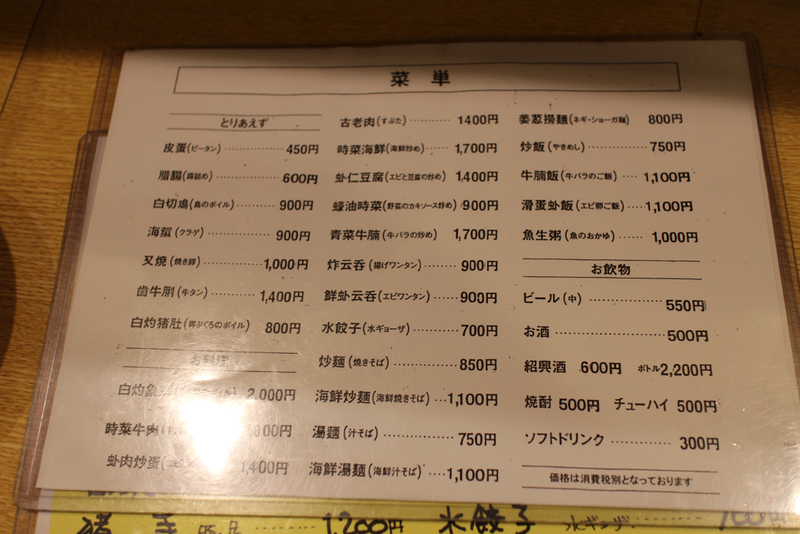 菜単
とりあえず
皮蛋(ピータン) 450円
腊腸(腸詰め) 600円
白切鶏(鳥のボイル) 900円
海蜇(クラゲ) 900円
叉焼(焼き豚) 1,000円
歯牛脷(牛タン) 1,400円
白灼猪肚(胃ぶくろのボイル) 800円
お料理
白灼象 2,000円
時菜牛肉 800円
虾肉炒蛋 1,400円
古老肉(すぶた) 1400円
時菜海鮮(海鮮炒め) 1,700円
虾仁豆腐(エビと豆腐の炒め) 1,400円
蠔油時菜(野菜のカキソース炒め) 900円
青菜牛腩(牛バラの炒め) 1,700円
炸云呑(揚げワンタン) 900円
鮮虾云呑(エビワンタン) 900円
水餃子(水ギョーザ) 700円
炒麺(焼きそば) 850円
海鮮炒麺(海鮮焼きそば) 1,100円
湯麺(汁そば) 750円
海鮮湯麺(海鮮汁そば) 1,100円
姜葱撈麺(ネギ・ショーガ麺) 800円
炒飯(やきめし) 750円
牛腩飯(牛バラのご飯) 1,100円
滑蛋虾飯(エビ卵ご飯) 1,100円
魚生粥(魚のおかゆ) 1,000円
お飲物
ビール(中) 550円
お酒 500円
紹興酒 600円 ボトル2,200円
焼酎 500円 チューハイ 500円
ソフトドリンク 300円
価格は消費税別となっております
猪手 1,200円 水餃子 水ギョーザ 700円